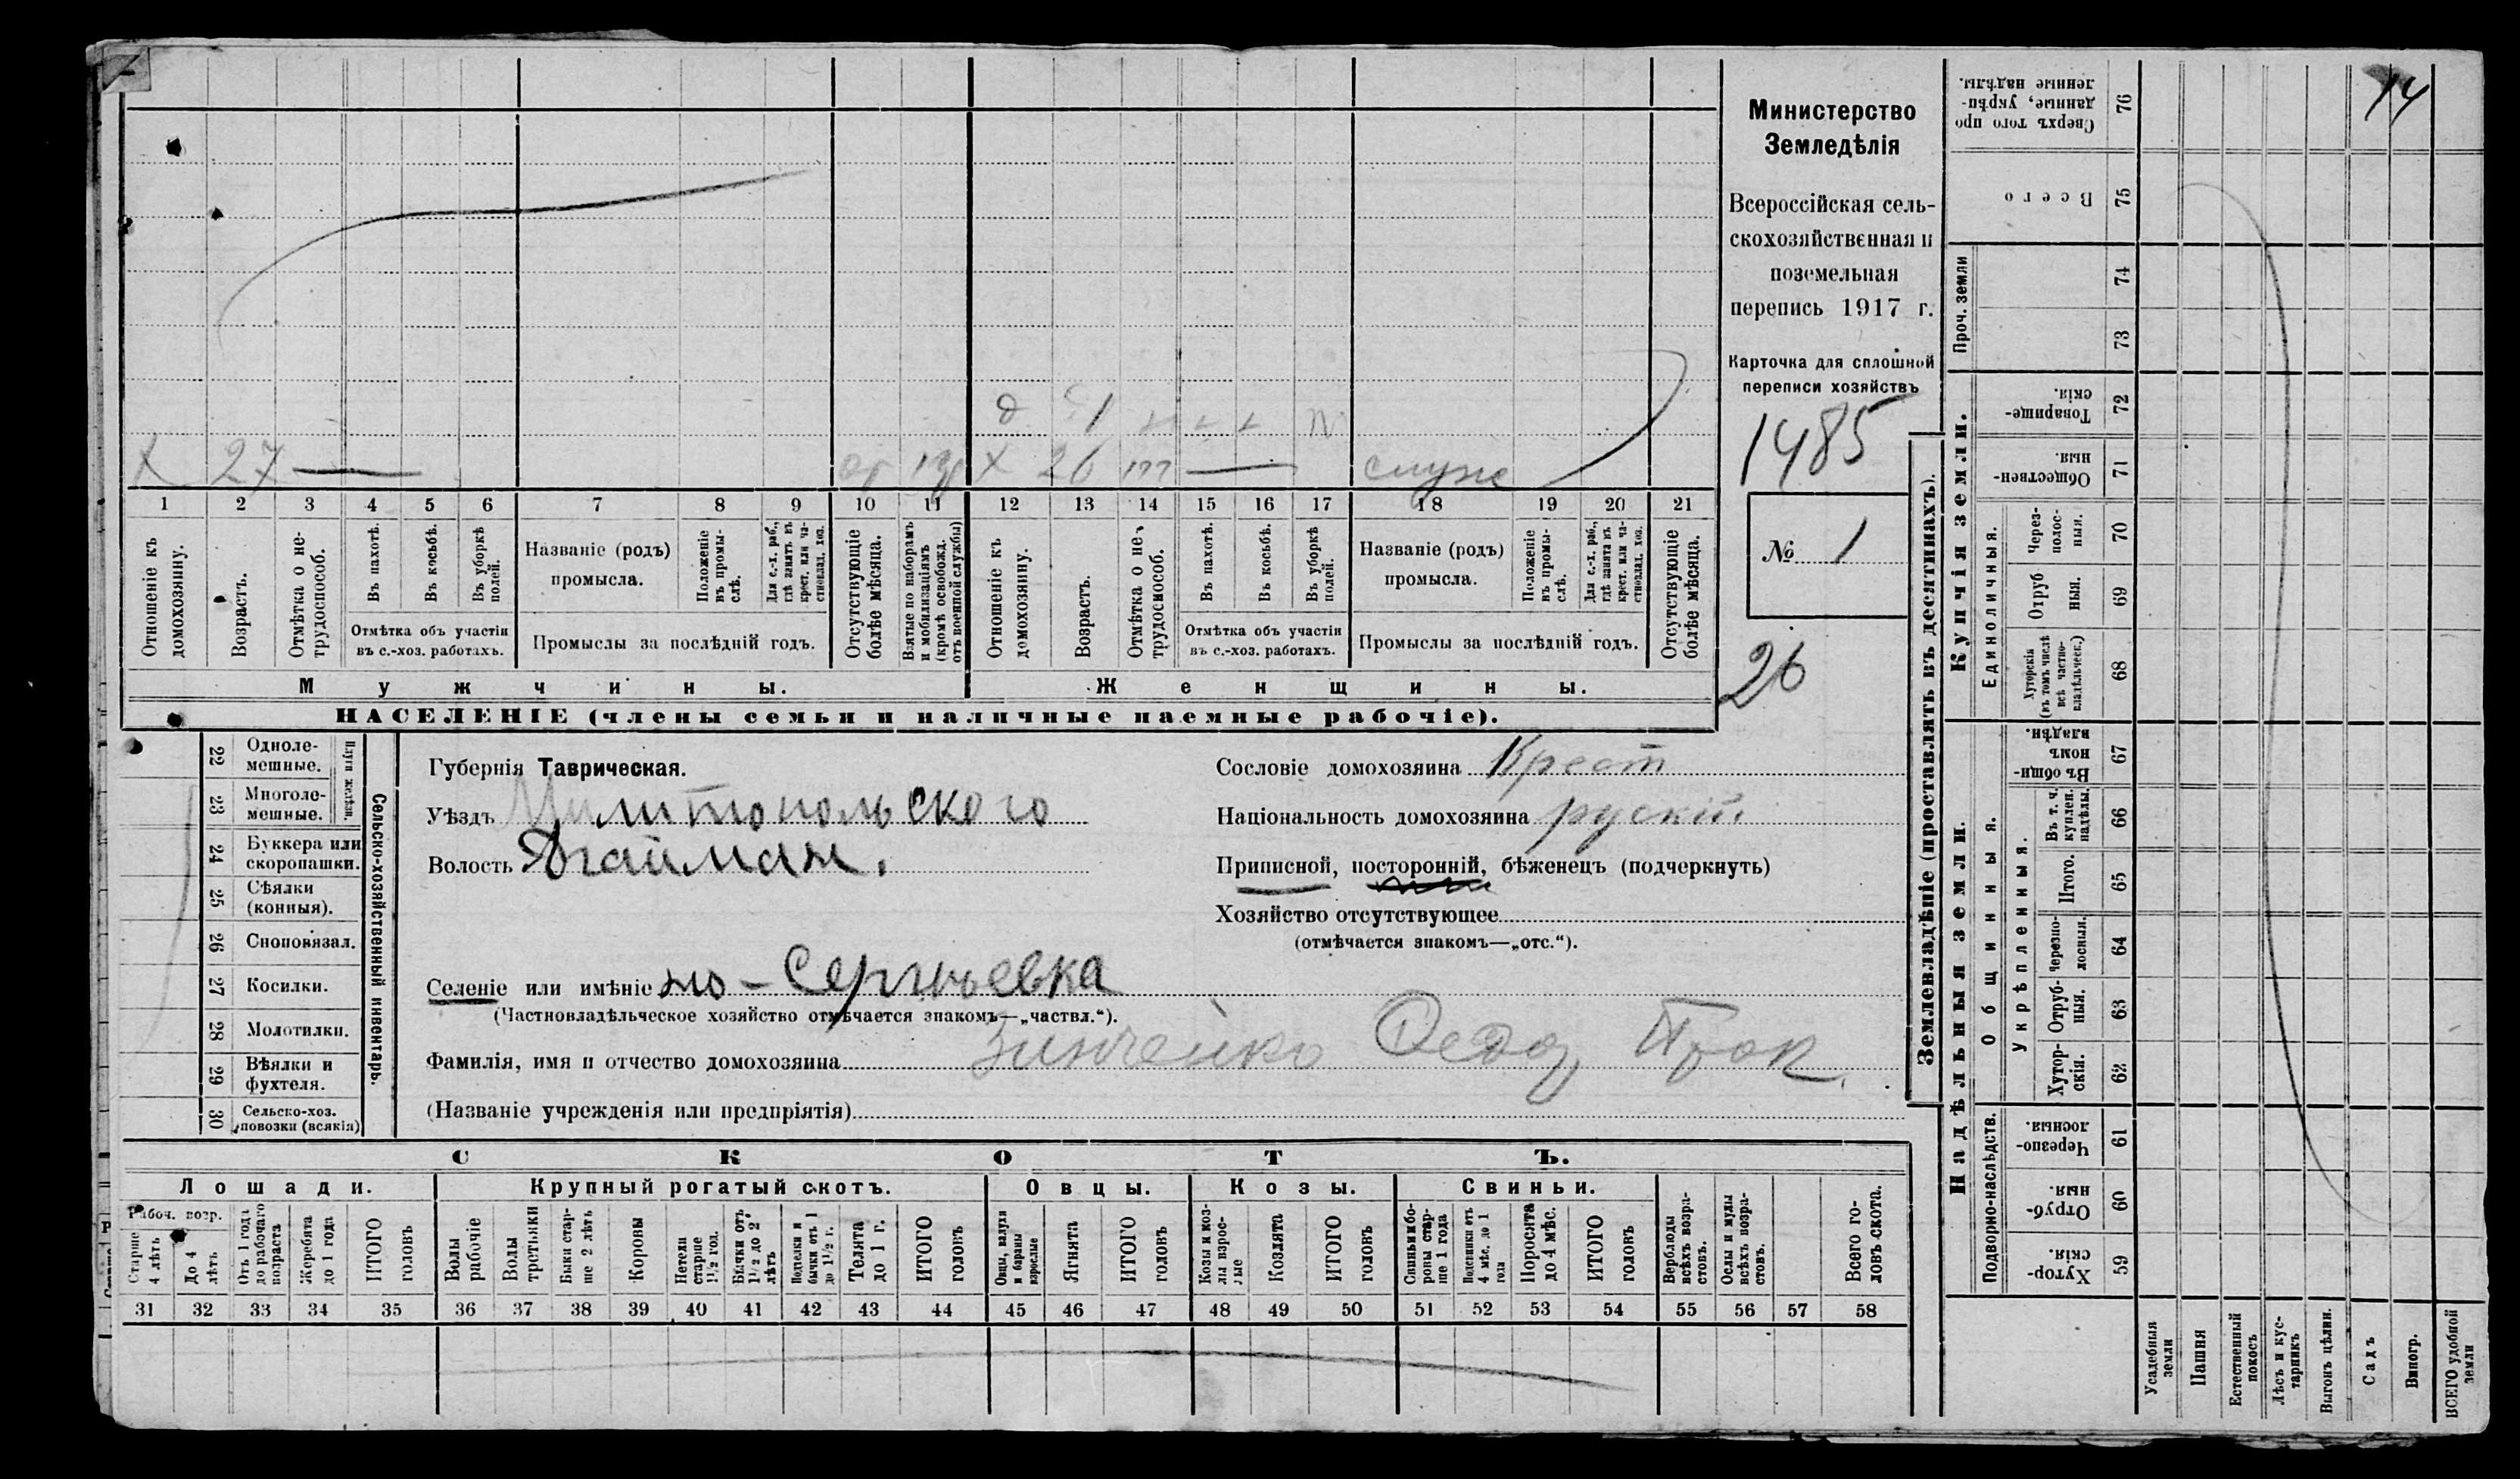 14
Министерство
Земледѣлія
Всероссійская сель-
скохозяйственная и
поземельная
перепись 1917 г.
Карточка для сплошной
переписи хозяйствъ
1485
№ 1
26
д 1 + + + N
х 27 — от х 26 т — служ
1 2 3 4 5 6 7 8 9 10 11 12 13 14 15 16 17 18 19 20 21
Отношеніе къ домохозяину.
Возрастъ.
Отмѣтка о не-
трудоспособ.
Въ пахотѣ.
Въ косьбѣ.
Въ уборкѣ полей.
Отмѣтка объ участіи
въ с.-хоз. работахъ.
Названіе (родъ)
промысла.
Положеніе
въ промы-
слѣ.
Для с.-х. раб.,
гдѣ занятъ въ
крест. или ча-
стновлад. хоз.
Промыслы за послѣдній годъ.
Отсутствующіе
болѣе мѣсяца.
Взятые по наборамъ
и мобилизаціямъ
(кромѣ освобожд.
отъ военной службы)
Отношеніе къ
домохозяину.
Возрастъ.
Отмѣтка о не-
трудоспособ.
Въ пахотѣ.
Въ косьбѣ.
Въ уборкѣ
полей.
Отмѣтка объ участіи
въ с.-хоз. работахъ.
Названіе (родъ)
промысла.
Положеніе
въ промы-
слѣ.
Для с.-х. раб.,
гдѣ занята въ
крест. или ча-
стновлад. хоз.
Промыслы за послѣдній годъ.
Отсутствующіе
болѣе мѣсяца.
Мужчины.
Женщины.
НАСЕЛЕНІЕ (члены семьи и наличные наемные рабочіе).
Сельско-хозяйственный инвентарь.
Плуги желѣзн.
22 Одноле-
мешные.
23 Многоле-
мешные.
24 Буккера или
скоропашки.
25 Сѣялки
(конныя).
26 Сноповязал.
27 Косилки.
28 Молотилки.
29 Вѣялки и
фухтеля.
30 Сельско-хоз.
повозки (всякія)
Губернія Таврическая.
Уѣздъ Милитопольского
Волость Агайман.
Селеніе или имѣніе но-Сергѣевка
(Частновладѣльческое хозяйство отмѣчается знакомъ—„частвл.“).
Фамилія, имя и отчество домохозяина Зинченко Федор Прок.
(Названіе учрежденія или предпріятія)
Сословіе домохозяина Крест
Національность домохозяина рускій.
Приписной, посторонній, бѣженецъ (подчеркнуть)
Хозяйство отсутствующее
(отмѣчается знакомъ—„отс.“).
СКОТЪ.
Лошади.
Крупный рогатый скотъ.
Овцы.
Козы.
Свиньи.
Рабоч. возр.
Старше
4 лѣтъ
До 4
лѣтъ
Отъ 1 года
до рабочаго
возраста
Жеребята
до 1 года
ИТОГО
головъ
Волы
рабочіе
Волы
третьяки
Быки стар-
ше 2 лѣтъ
Коровы
Нетели
старше
1½ год.
Бычки отъ
1½ до 2
лѣтъ
Телки и
бычки отъ 1
до 1½ г.
Телята
до 1 г.
ИТОГО
головъ
Овцы, валухи
и бараны
взрослые
Ягнята
ИТОГО
головъ
Козы и коз-
лы взрос-
лые
Козлята
ИТОГО
головъ
Свиньи и бо-
ровы стар-
ше 1 года
Подсвинки отъ
4 мѣс. до 1
года
Поросята
до 4 мѣс.
ИТОГО
головъ
Верблюды
всѣхъ возра-
стовъ.
Ослы и мулы
всѣхъ возра-
стовъ.
Всего го-
ловъ скота.
31 32 33 34 35 36 37 38 39 40 41 42 43 44 45 46 47 48 49 50 51 52 53 54 55 56 57 58
Землевладѣніе (проставлять въ десятинахъ).
Надѣльныя земли.
Купчія земли.
Проч. земли
Подворно-наслѣдств.
Общинныя.
Укрѣпленныя.
Единоличныя.
Сверхъ того про
данные, укрѣп-
ленные надѣлы. 76
Всего 75
74
73
Товарище-
скія. 72
Обществен-
ныя. 71
Через-
полос-
ныя. 70
Отруб
ныя. 69
Хуторскія
(въ томъ числѣ
всѣ частно-
владѣльческ.) 68
Въ общин-
номъ
владѣн. 67
Въ т. ч.
куплен.
надѣлы. 66
Итого. 65
Черезпо-
лосныя. 64
Отруб-
ныя. 63
Хутор-
скія. 62
Черезпо-
лосныя. 61
Отруб-
ныя. 60
Хутор-
скія. 59
Усадебныя
земли
Пашня
Естественный
покосъ
Лѣсъ и кус-
тарникъ
Выгонъ цѣлин.
Садъ
Виногр.
ВСЕГО удобной
земли